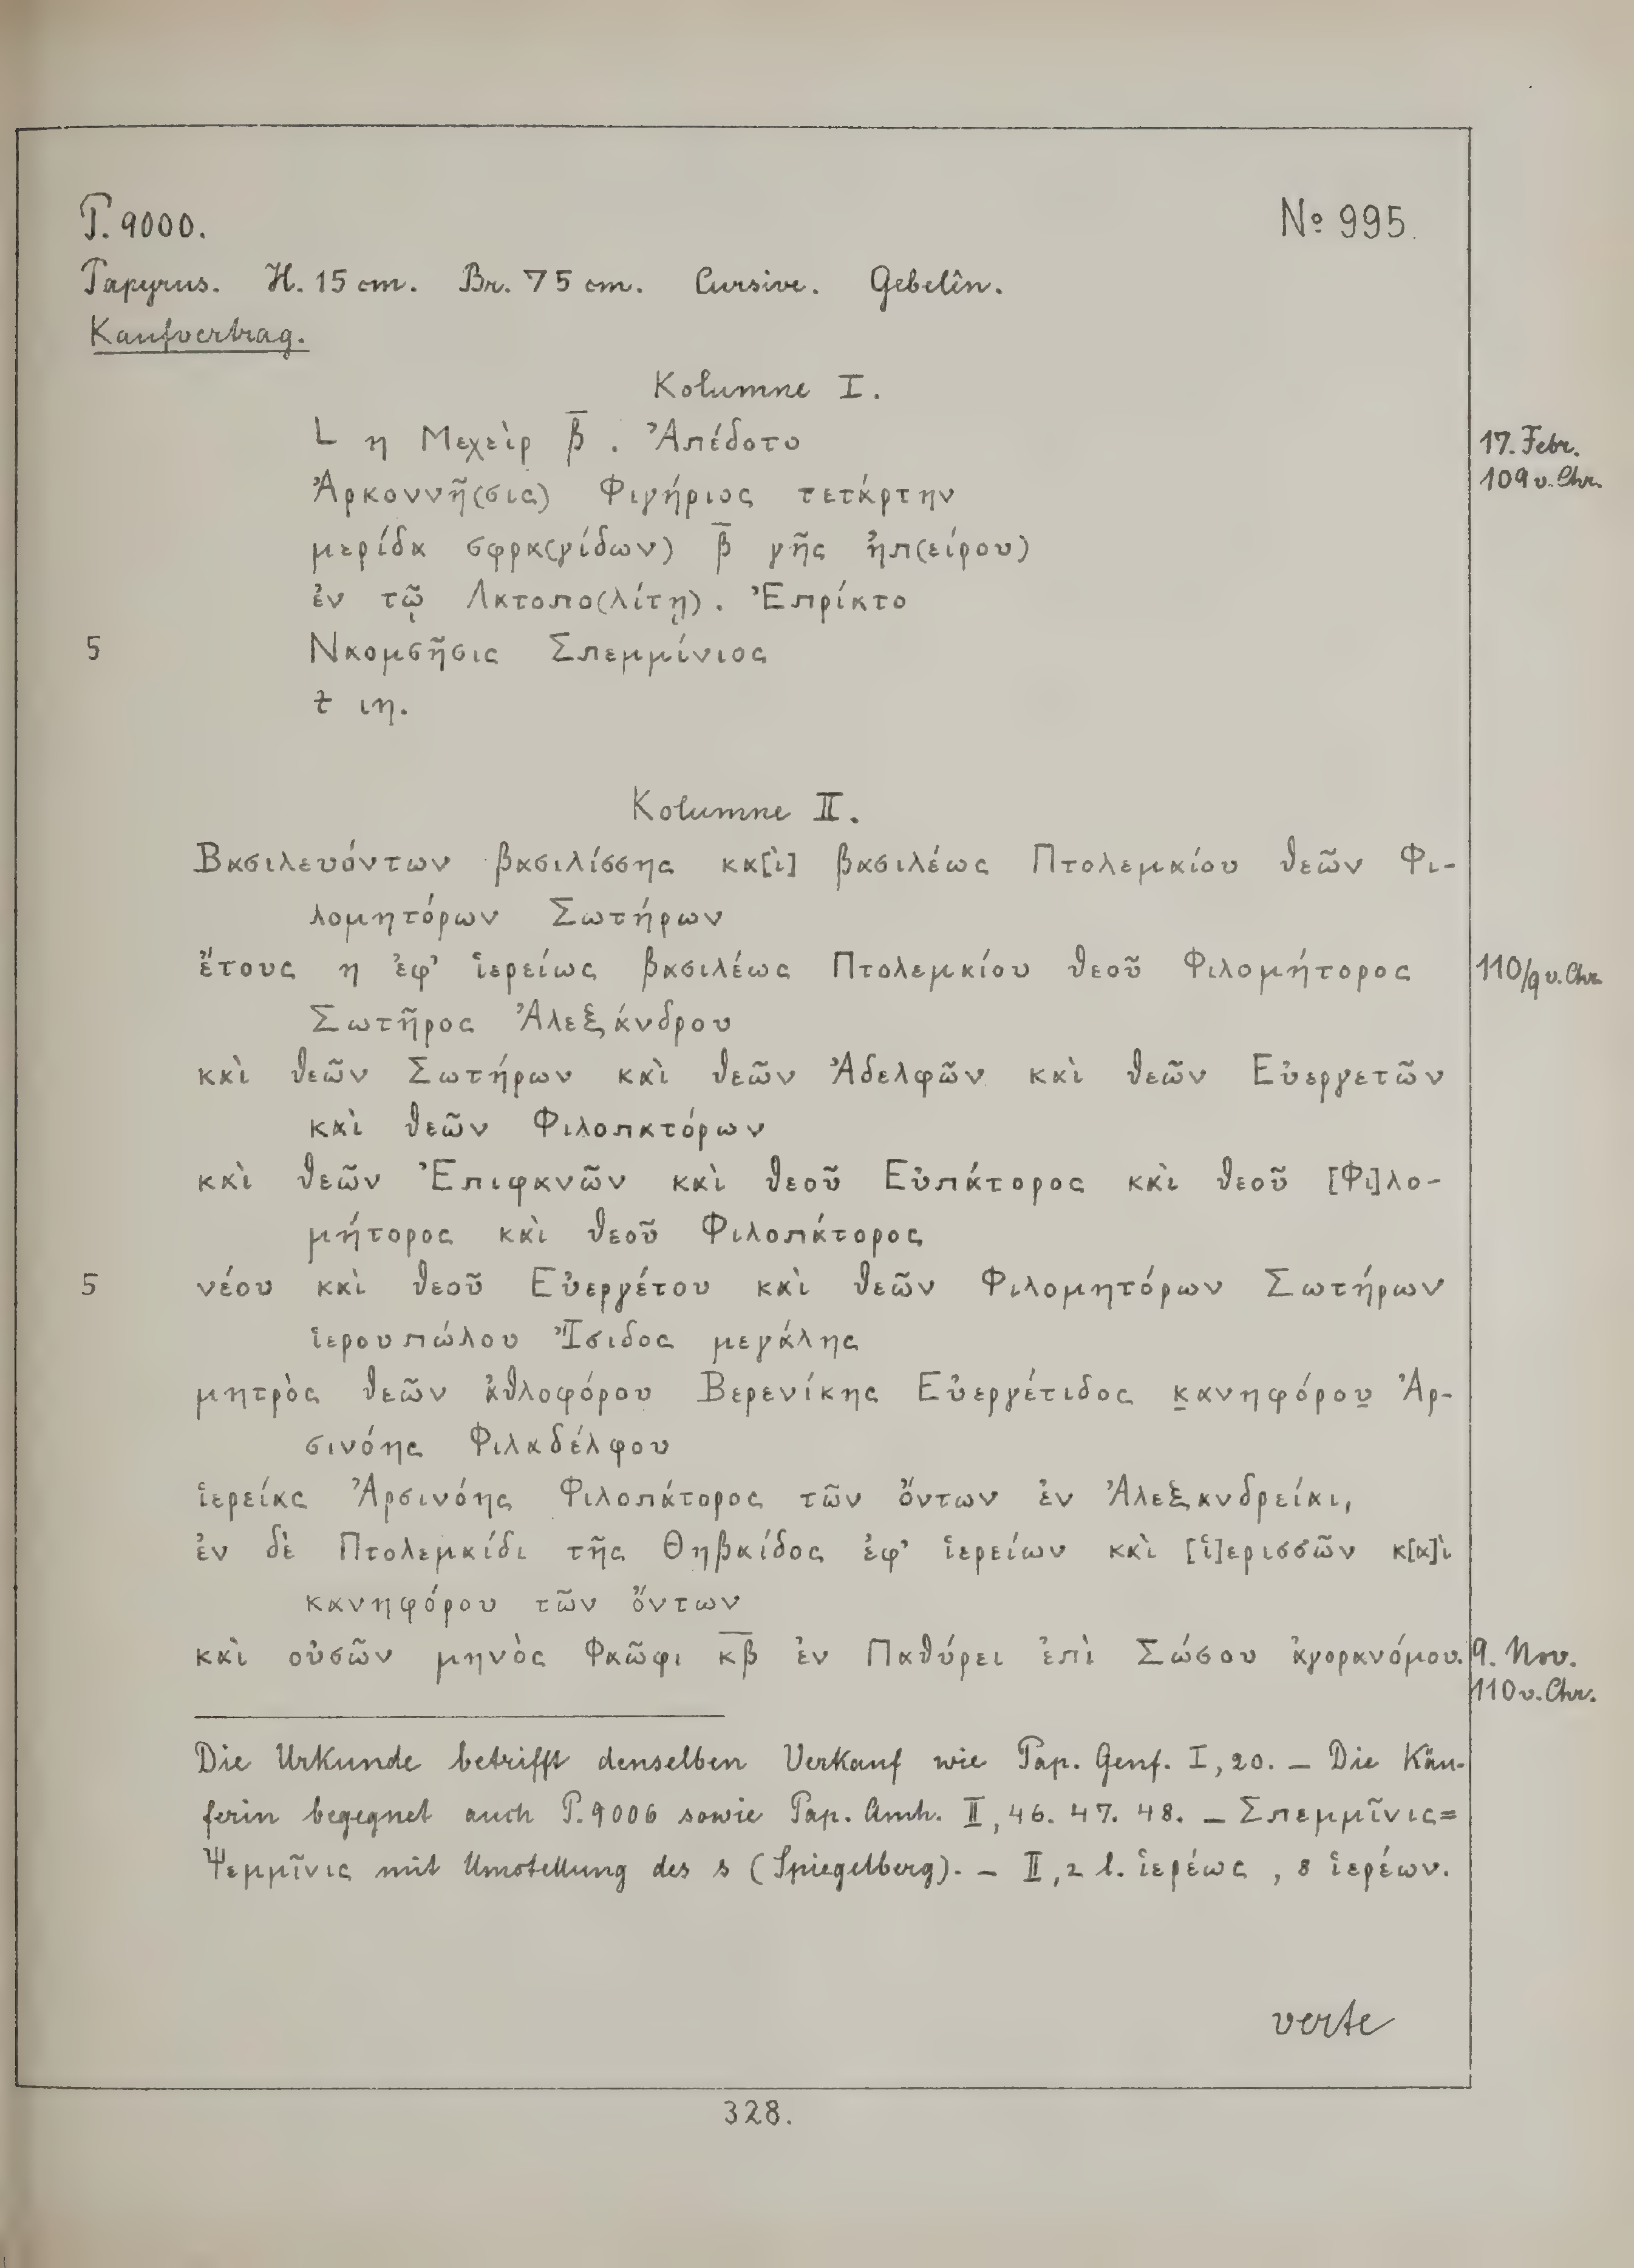 P. 9000. № 995.
Papyrus. H. 15 cm. Br. 75 cm. Cursive. Gebelên.
Kaufvertrag.
Kolumne I.
L η Μεχεὶρ β̅. Ἀπέδοτο 17. Febr.
Ἁρκοννῆ(σις) Φιγήριος τετάρτην 109 v. Chr.
μερίδα σφρα(γίδων) β̅ γῆς ἠπ(είρου)
ἐν τῷ Λατοπο(λίτῃ). Ἐπρίατο
5 Ναομσῆσις Σπεμμίνιος
ƚ ιη.
Kolumne II.
Βασιλευόντων βασιλίσσης κα[ὶ] βασιλέως Πτολεμαίου θεῶν Φι-
λομητόρων Σωτήρων
ἔτους η ἐφ’ ἱερείως βασιλέως Πτολεμαίου θεοῦ Φιλομήτορος 110/9 v. Chr.
Σωτῆρος Ἀλεξάνδρου
καὶ θεῶν Σωτήρων καὶ θεῶν Ἀδελφῶν καὶ θεῶν Εὐεργετῶν
καὶ θεῶν Φιλοπατόρων
καὶ θεῶν Ἐπιφανῶν καὶ θεοῦ Εὐπάτορος καὶ θεοῦ [Φι]λο-
μήτορος καὶ θεοῦ Φιλοπάτορος
5 νέου καὶ θεοῦ Εὐεργέτου καὶ θεῶν Φιλομητόρων Σωτήρων
ἱεροῦ πώλου Ἴσιδος μεγάλης
μητρὸς θεῶν ἀθλοφόρου Βερενίκης Εὐεργέτιδος κ̲ανηφόρου̲ Ἀρ-
σινόης Φιλαδέλφου
ἱερείας Ἀρσινόης Φιλοπάτορος τῶν ὄντων ἐν Ἀλεξανδρείαι,
ἐν δὲ Πτολεμαίδι τῆς Θηβαίδος ἐφ’ ἱερείων καὶ [ἱ]ερισσῶν κ[α]ὶ
κανηφόρου τῶν ὄντων
καὶ οὐσῶν μηνὸς Φαῶφι κ̅β̅ ἐν Παθύρει ἐπὶ Σώσου ἀγορανόμου. 9. Nov.
110 v. Chr.
Die Urkunde betrifft denselben Verkauf wie Pap. Genf. I, 20. – Die Käu-
ferin begegnet auch P. 9006 sowie Pap. Amh. II, 46. 47. 48. – Σπεμμῖνις =
Ψεμμῖνις mit Umstellung des s (Spiegelberg). – II, 2 l. ἱερέως, 8 ἱερέων.
verte
328.